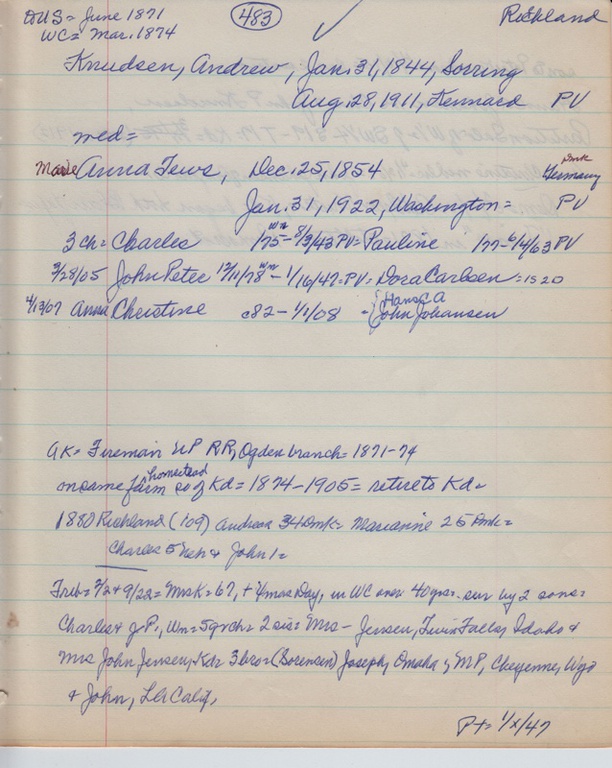 DUS = June 1871 (483) Richland
WC = Mar. 1874
Knudsen, Andrew, Jan. 31, 1844, Sorring
Aug. 28, 1911, Kennard PV
med =
Marie Anna Tews, Dec. 25, 1854 Dmk Germany
Jan. 31, 1922, Washington = PV
3 ch = Charles 1/75 - 8/3/43 PV = Pauline 1/77 - 6/14/63 PV
2/28/05 John Peter 12/11/78 - 1/16/47 = PV = Dora Carlsen = 1520
4/13/07 Anna Christine c82 - 1/1/08 = {Hans C A
John Johansen
AK = Fireman UP RR, Ogden branch = 1871-74
on same farm homestead so of Kd = 1874 - 1905 = retire to Kd =
1880 Richland (109) Andreas 34 Dmk = Marianne 25 Dmk =
Charles 5 Neb & John 1 =
Trib = 2/2 + 9/22 = Mrs K = 67, + 1 mos Day, in WC over 40 yrs = sur by 2 sons =
Charles & J.P., Wn = 5 grch = 2 sis = Mrs - Jensen, Twin Falls, Idaho &
Mrs John Jensen, Kd = 3 bro = (Sorensen) Joseph, Omaha, MP, Cheyenne, Wyo
& John, LA Calif,
PT = 1/X/47